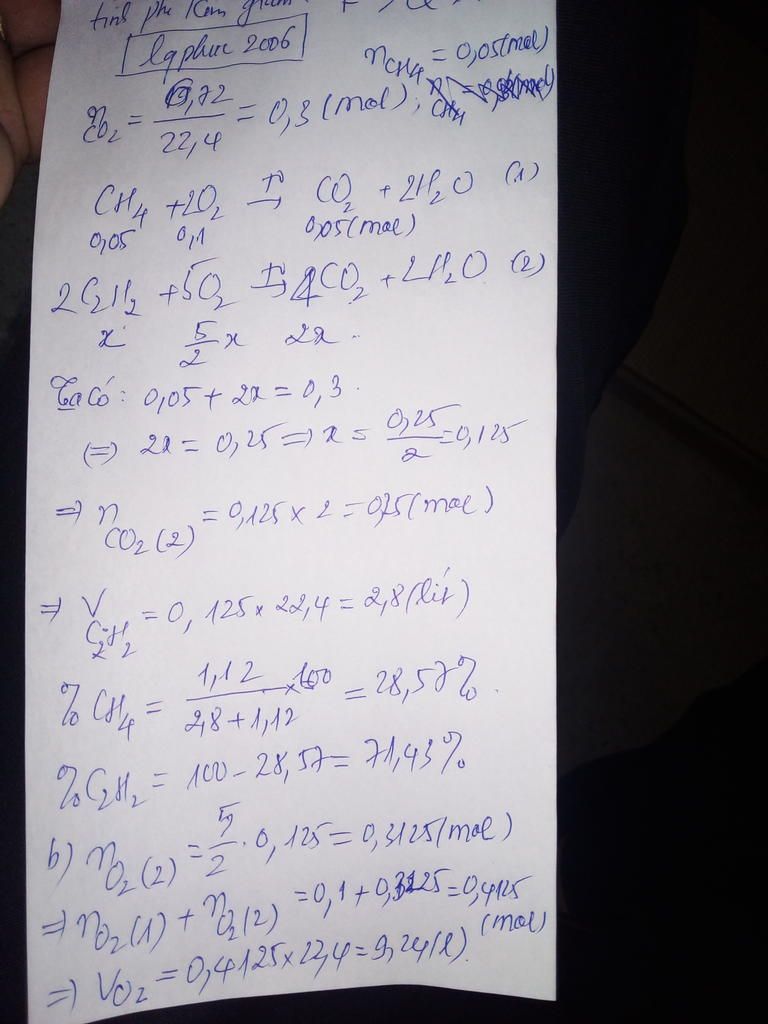 tính phần trăm
lqphuc 2006
n CH4 = 0,05 (mol)
n CO2 = 6,72/22,4 = 0,3 (mol);
CH4 + 2O2 →t° CO2 + 2H2O (1)
0,05 0,1 0,05 (mol)
2C2H2 + 5O2 →t° 4CO2 + 2H2O (2)
x 5/2 x 2x
Ta có: 0,05 + 2x = 0,3.
(=) 2x = 0,25 => x = 0,25/2 = 0,125
=> n CO2 (2) = 0,125 × 2 = 0,25 (mol)
=> V C2H2 = 0,125 × 22,4 = 2,8 (lít)
% CH4 = 1,12/2,8+1,12 × 100 = 28,57%.
% C2H2 = 100 - 28,57 = 71,43%
b) n O2 (2) = 5/2 . 0,125 = 0,3125 (mol)
=> n O2 (1) + n O2 (2) = 0,1 + 0,3125 = 0,4125 (mol)
=> V O2 = 0,4125 × 22,4 = 9,24 (l).